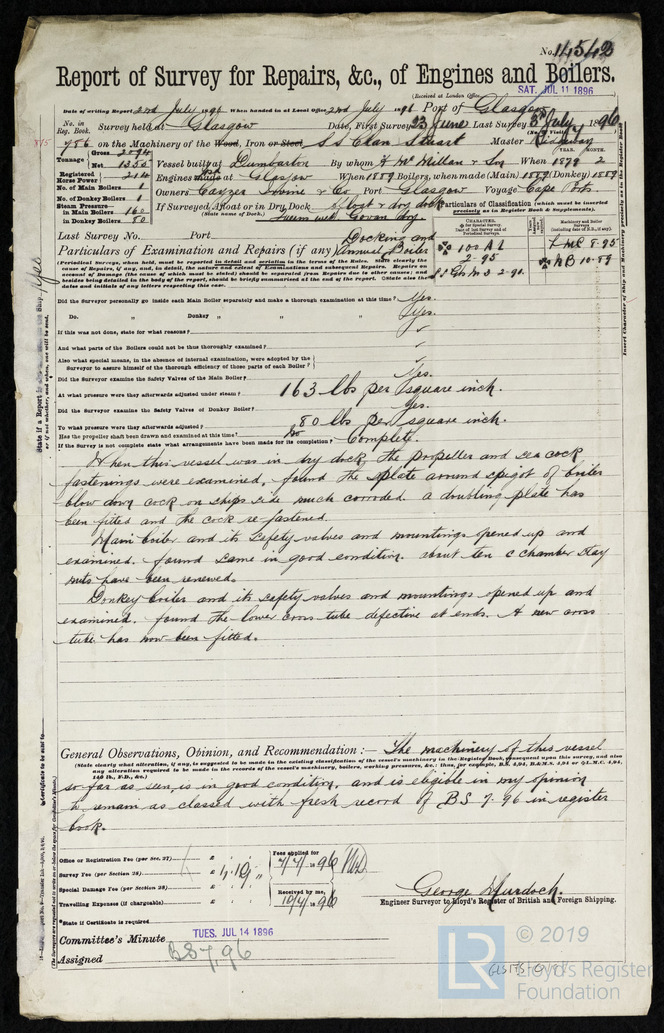 No. 14543
Report of Survey for Repairs, &c., of Engines and Boilers.
(Received at London Office
SAT. JUL 11 1896
Date of writing Report 2nd July 1896 When handed in at Local Office 2nd July 1896 Port of Glasgow
No. in Reg. Book. Survey held at Glasgow Date, First Survey 23 June Last Survey 3rd July 1896
786 on the Machinery of the Wood, Iron or Steel, S S Clan Stuart Master
Tonnage Gross 2594 Net 1355
Vessel built at Dumbarton By whom A McMillan & Son When 1879 2
YEAR. MONTH.
Registered Horse Power 210
Engines made at Glasgow When 1889 Boilers, when made (Main) 1889 (Donkey) 1889
No. of Main Boilers 1
Owners Cayzer Irvine & Co Port Glasgow Voyage Cape Port.
No. of Donkey Boilers 1
Steam Pressure in Main Boilers 160
in Donkey Boilers 80
If Surveyed Afloat or in Dry Dock Afloat & dry dock
(State name of Dock.) Govan dry.
Particulars of Classification (which must be inserted precisely as in Register Book & Supplements).
Last Survey No. Port
Particulars of Examination and Repairs (if any) Docking and Annual Boiler
CHARACTER.
100 A1
2-95
SS Gls No 3 2-91
LMC 8.95
NB 10.89
Did the Surveyor personally go inside each Main Boiler separately and make a thorough examination at this time? Yes.
Do. " Donkey " " " Yes.
If this was not done, state for what reasons?
And what parts of the Boilers could not be thus thoroughly examined?
Also what special means, in the absence of internal examination, were adopted by the Surveyor to assure himself of the thorough efficiency of those parts of each Boiler?
Did the Surveyor examine the Safety Valves of the Main Boiler? Yes.
At what pressure were they afterwards adjusted under steam? 163 lbs per square inch.
Did the Surveyor examine the Safety Valves of Donkey Boiler? Yes.
To what pressure were they afterwards adjusted? 80 lbs per square inch.
Has the propeller shaft been drawn and examined at this time? No
If the Survey is not complete state what arrangements have been made for its completion? Complete.
When this vessel was in dry dock, the propeller and sea cock
fastenings were examined, found the plate around spigot of boiler
blow down cock on ships side much corroded a doubling plate has
been fitted and the cock re-fastened
Main boiler and its safety valves and mountings opened up and
examined. found same in good condition. about ten c chamber stay
nuts have been renewed.
Donkey boiler and its safety valves and mountings opened up and
examined. found the lower cross tube defective at ends. A new cross
tube has now been fitted.
General Observations, Opinion, and Recommendation :— The machinery of this vessel
so far as seen, is in good condition, and is eligible in my opinion
to remain as classed with fresh record of BS 7.96 in register
book.
Office or Registration Fee (per Sec. 27) £
Survey Fee (per Section 28) £ 1 . 10 . "
Special Damage Fee (per Section 28) £
Travelling Expenses (if chargeable) £
Fees applied for
7/7/1896
Received by me,
10/7/1896
George Murdoch.
Engineer Surveyor to Lloyd's Register of British and Foreign Shipping.
*State if Certificate is required
Committee's Minute TUES. JUL 14 1896
Assigned BS 7.96
LR
© 2019
Lloyd's Register
Foundation